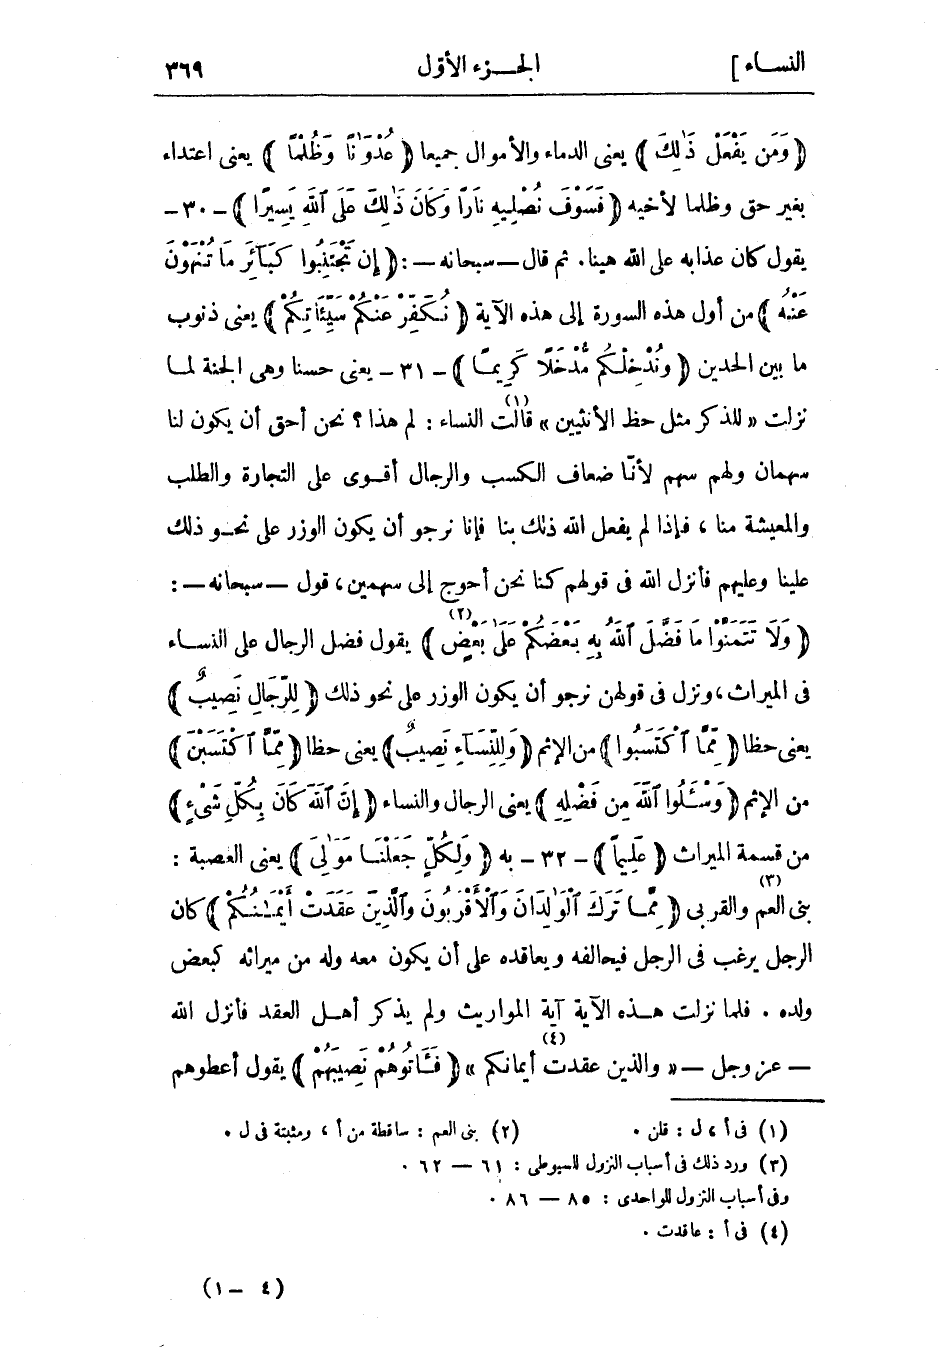 النساء ] الجزء الأول ٣٦٩
﴿ وَمَن يَفْعَلْ ذَٰلِكَ ﴾ يعنى الدماء والأموال جميعا ﴿ عُدْوَٰنًا وَظُلْمًا ﴾ يعنى اعتداء
بغير حق وظلما لأخيه ﴿ فَسَوْفَ نُصْلِيهِ نَارًا وَكَانَ ذَٰلِكَ عَلَى ٱللَّهِ يَسِيرًا ﴾ - ٣٠ -
يقول كان عذابه على الله هينا . ثم قال — سبحانه — : ﴿ إِن تَجْتَنِبُوا كَبَآئِرَ مَا تُنْهَوْنَ
عَنْهُ ﴾ من أول هذه السورة إلى هذه الآية ﴿ نُكَفِّرْ عَنكُمْ سَيِّئَاتِكُمْ ﴾ يعنى ذنوب
ما بين الحدين ﴿ وَنُدْخِلْكُم مُّدْخَلًا كَرِيمًا ﴾ - ٣١ - يعنى حسنا وهى الجنة لما
نزلت « للذكر مثل حظ الأنثيين » قالت (١) النساء : لم هذا ؟ نحن أحق أن يكون لنا
سهمان ولهم سهم لأنّا ضعاف الكسب والرجال أقوى على التجارة والطلب
والمعيشة منا ، فإذا لم يفعل الله ذلك بنا فإنا نرجو أن يكون الوزر على نحو ذلك
علينا وعليهم فأنزل الله فى قولهم كنا نحن أحوج إلى سهمين ، قول — سبحانه — :
﴿ وَلَا تَتَمَنَّوْا مَا فَضَّلَ ٱللَّهُ بِهِ بَعْضَكُمْ عَلَىٰ بَعْضٍ (٢) ﴾ يقول فضل الرجال على النساء
فى الميراث ، ونزل فى قولهن نرجو أن يكون الوزر على نحو ذلك ﴿ لِلرِّجَالِ نَصِيبٌ ﴾
يعنى حظا ﴿ مِمَّا ٱكْتَسَبُوا ﴾ من الإثم ﴿ وَلِلنِّسَآءِ نَصِيبٌ ﴾ يعنى حظا ﴿ مِمَّا ٱكْتَسَبْنَ ﴾
من الإثم ﴿ وَسْـَٔلُوا ٱللَّهَ مِن فَضْلِهِ ﴾ يعنى الرجال والنساء ﴿ إِنَّ ٱللَّهَ كَانَ بِكُلِّ شَىْءٍ ﴾
من قسمة الميراث ﴿ عَلِيمًا ﴾ - ٣٢ - به ﴿ وَلِكُلٍّ جَعَلْنَا مَوَٰلِىَ ﴾ يعنى العصبة :
بنى العم (٣) والقربى ﴿ مِّمَّا تَرَكَ ٱلْوَٰلِدَانِ وَٱلْأَقْرَبُونَ وَٱلَّذِينَ عَقَدَتْ أَيْمَـٰنُكُمْ ﴾ كان
الرجل يرغب فى الرجل فيحالفه ويعاقده على أن يكون معه وله من ميراثه كبعض
ولده . فلما نزلت هذه الآية آية المواريث ولم يذكر أهل العقد فأنزل الله
— عز وجل — « والذين عقدت (٤) أيمانكم » ﴿ فَـَٔاتُوهُمْ نَصِيبَهُمْ ﴾ يقول أعطوهم
(١) فى أ ، ل : قلن . (٢) بنى العم : ساقطة من أ ، ومثبتة فى ل .
(٣) ورد ذلك فى أسباب النزول للسيوطى : ٦١ — ٦٢ .
وفى أسباب النزول للواحدى : ٨٥ — ٨٦ .
(٤) فى أ : عاقدت .
(٤ - ١)